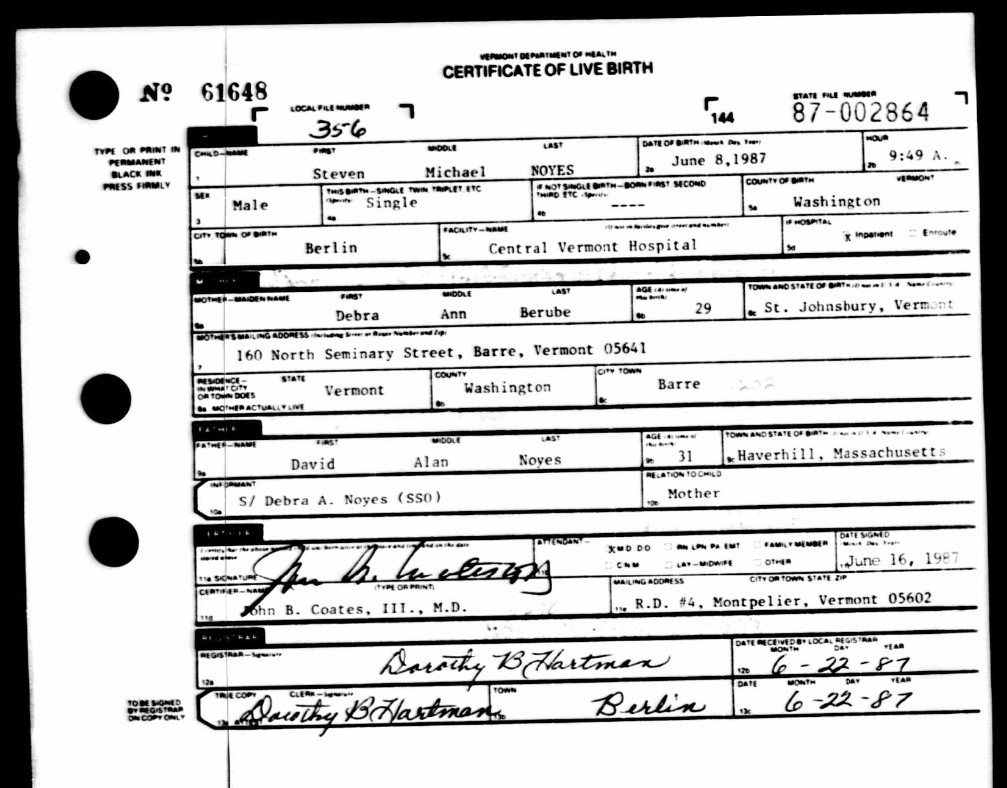 VERMONT DEPARTMENT OF HEALTH
CERTIFICATE OF LIVE BIRTH
Nº 61648
LOCAL FILE NUMBER
356
144
STATE FILE NUMBER
87-002864
TYPE OR PRINT IN
PERMANENT
BLACK INK
PRESS FIRMLY
CHILD—NAME FIRST MIDDLE LAST
1 Steven Michael NOYES
DATE OF BIRTH (Month, Day, Year)
2a June 8,1987
HOUR
2b 9:49 A. m
SEX
3 Male
THIS BIRTH—SINGLE TWIN TRIPLET ETC
(Specify)
4a Single
IF NOT SINGLE BIRTH—BORN FIRST SECOND
THIRD ETC (Specify)
4b ----
COUNTY OF BIRTH VERMONT
5a Washington
CITY TOWN OF BIRTH
5b Berlin
FACILITY—NAME (If not in facility give street and number)
5c Central Vermont Hospital
IF HOSPITAL
5d X Inpatient Enroute
MOTHER—MAIDEN NAME FIRST MIDDLE LAST
6a Debra Ann Berube
AGE (At time of
this birth)
6b 29
TOWN AND STATE OF BIRTH (If not in U.S.A. Name Country)
6c St. Johnsbury, Vermont
MOTHER'S MAILING ADDRESS (Including Street or Route Number and Zip)
7 160 North Seminary Street, Barre, Vermont 05641
RESIDENCE—
IN WHAT CITY
OR TOWN DOES
8a MOTHER ACTUALLY LIVE
STATE
Vermont
COUNTY
8b Washington
CITY TOWN
8c Barre 1202
FATHER
FATHER—NAME FIRST MIDDLE LAST
9a David Alan Noyes
AGE (At time of
this birth)
9b 31
TOWN AND STATE OF BIRTH (If not in U.S.A. Name Country)
9c Haverhill, Massachusetts
INFORMANT
10a S/ Debra A. Noyes (SSO)
RELATION TO CHILD
10b Mother
CERTIFIER
I certify that the above named child was born alive at the place and time and on the date
stated above
11a SIGNATURE
ATTENDANT—
X M D DO RN LPN PA EMT FAMILY MEMBER
C N M LAY-MIDWIFE OTHER
DATE SIGNED
(Month, Day, Year)
June 16, 1987
CERTIFIER—NAME (TYPE OR PRINT)
11d John B. Coates, III., M.D.
MAILING ADDRESS CITY OR TOWN STATE ZIP
11e R.D. #4, Montpelier, Vermont 05602
REGISTRAR
REGISTRAR—Signature
12a Dorothy B Hartman
DATE RECEIVED BY LOCAL REGISTRAR
MONTH DAY YEAR
12b 6-22-87
TO BE SIGNED
BY REGISTRAR
ON COPY ONLY
TRUE COPY CLERK—Signature
13a ATTEST Dorothy B Hartman
TOWN
13b Berlin
DATE MONTH DAY YEAR
13c 6-22-87